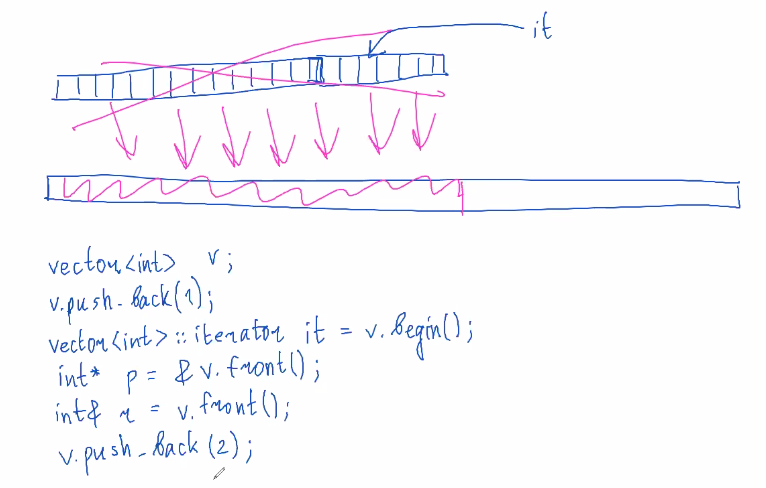 it
vector<int> v;
v.push_back(1);
vector<int>::iterator it = v.begin();
int* p = &v.front();
int& r = v.front();
v.push_back(2);